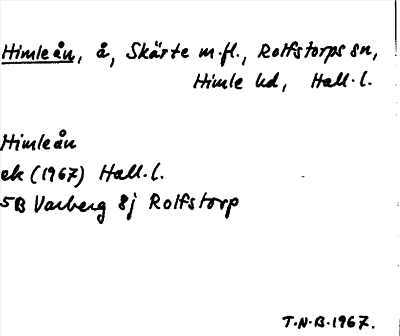 Himleån, å, Skärte m.fl., Rolfstorps sn,
Himle hd, Hall.l.
Himleån
ek (1967) Hall.l.
5B Varberg 8j Rolfstorp
T.N-B.1967.